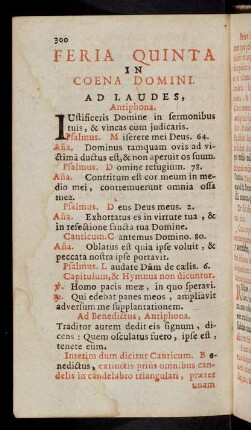 300
FERIA QUINTA
IN
COENA DOMINI.
AD LAUDES,
Antiphona.
IUstificeris Domine in sermonibus
tuis, & vincas cum judicaris.
Psalmus. M iserere mei Deus. 64.
Aña. Dominus tamquam ovis ad vi-
ctimâ ductus est, & non aperuit os suum.
Psalmus. D omine refugium. 78.
Aña. Contritum est cor meum in me-
dio mei, contremuerunt omnia ossa
mea.
Psalmus. D eus Deus meus. 2.
Aña. Exhortatus es in virtute tua, &
in refectione sancta tua Domine.
Canticum. C antemus Domino. 80.
Aña. Oblatus est quia ipse voluit, &
peccata nostra ipse portavit.
Psalmus. L audate Dñm de cælis. 6.
Capitulum, & Hymnus non dicuntur.
℣. Homo pacis meæ, in quo speravi.
℟. Qui edebat panes meos, ampliavit
adversum me supplantationem.
Ad Benedictus, Antiphona.
Traditor autem dedit eis signum, di-
cens: Quem osculatus fuero, ipse est,
tenete eum.
Interim dum dicitur Canticum. B e-
nedictus, extinctis prius omnibus can-
delis in candelabro triangulari, præter
unam